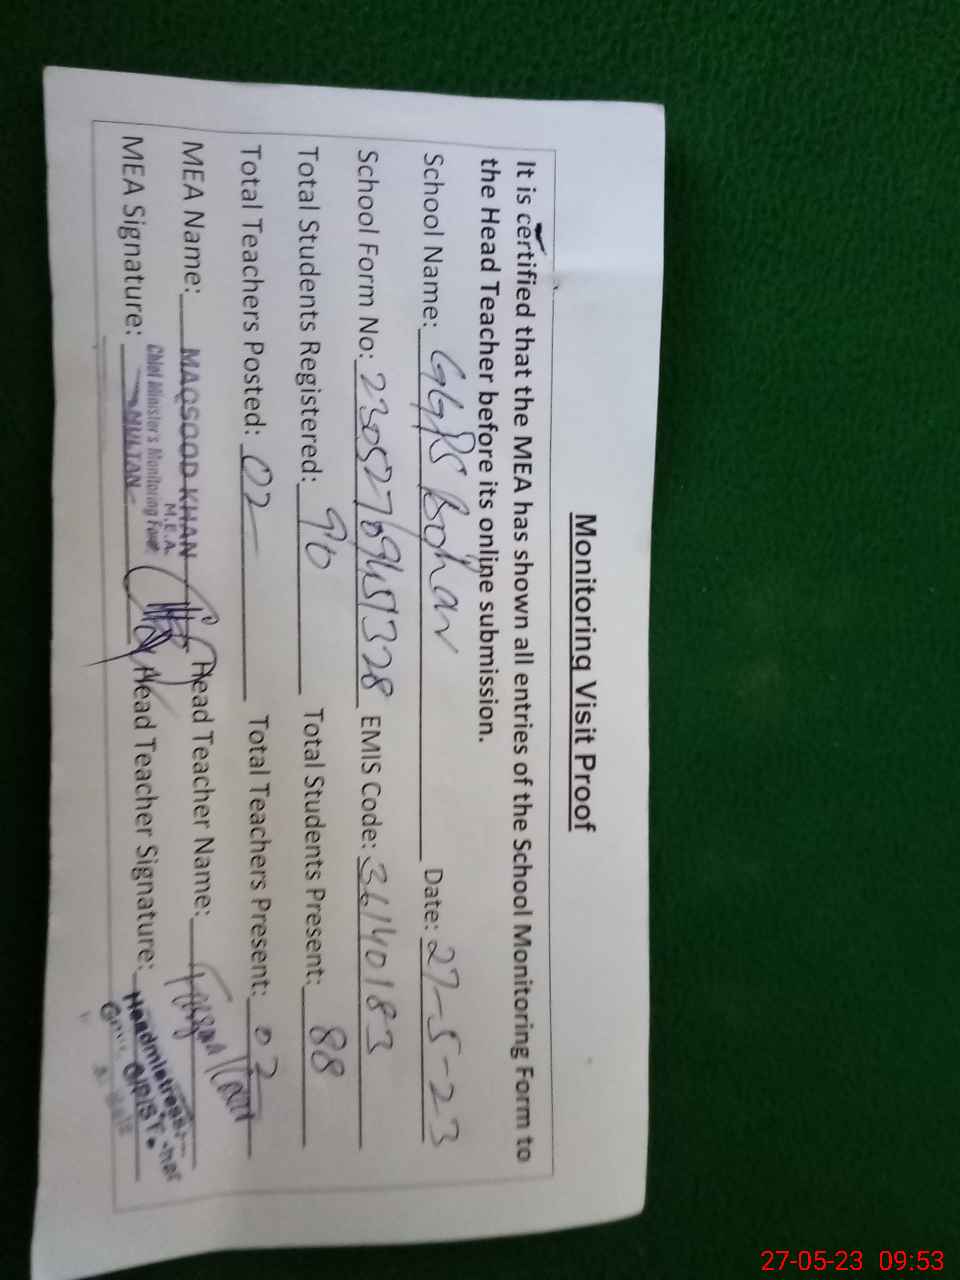 Monitoring Visit Proof
It is certified that the MEA has shown all entries of the School Monitoring Form to
the Head Teacher before its online submission.
School Name: GGPS Bohar Date: 27-5-23
School Form No: EMIS Code: 36140183
Total Students Registered: 90 Total Students Present: 88
Total Teachers Posted: 02 Total Teachers Present: 02
MEA Name: MAQSOOD KHAN Head Teacher Name:
M.E.A.
Chief Minister's Monitoring Force
MEA Signature: MULTAN Head Teacher Signature:
Headmistress
27-05-23 09:53